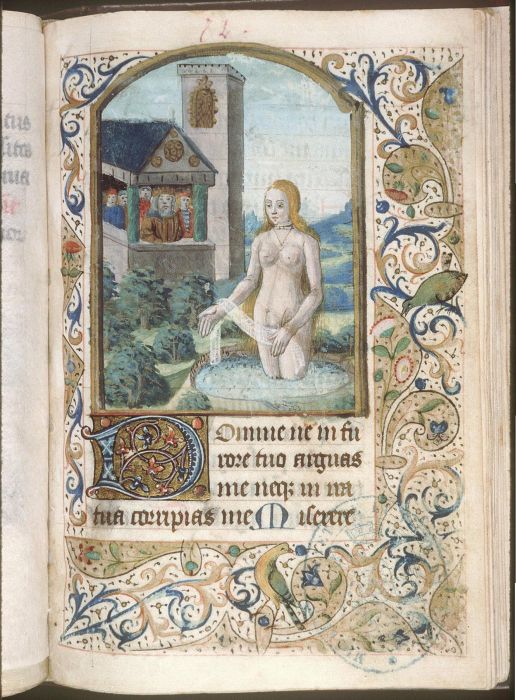 Domine ne in fu
rore tuo arguas
me neqꝫ in ira
tua corripias me Miserere